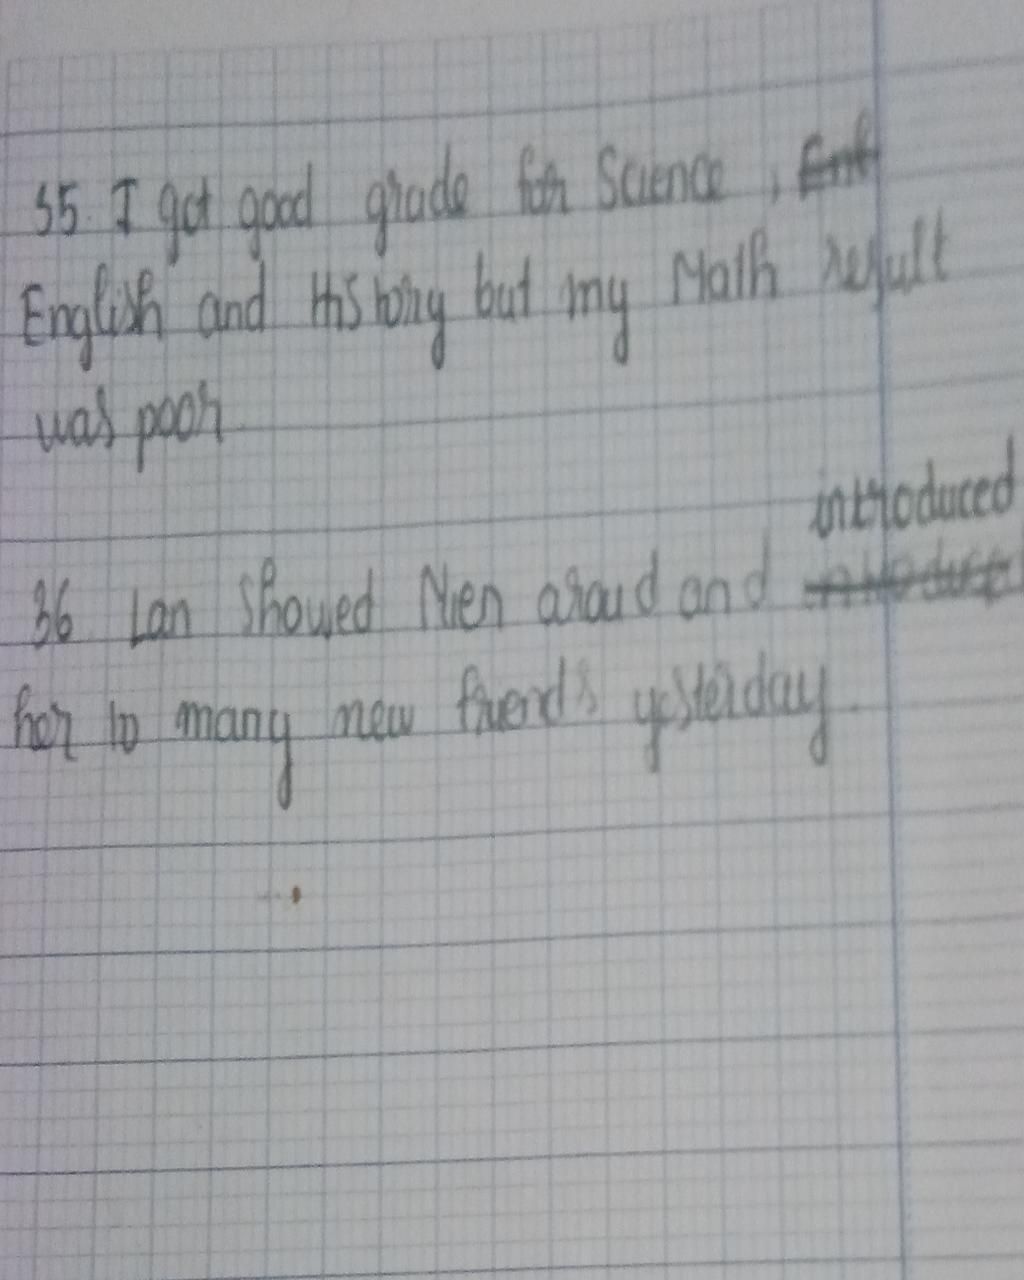 35. I got good grade for Science,
English and History but my Math result
was poor
introduced
36 Lan showed Nien aroud and
her to many new friends yesterday.